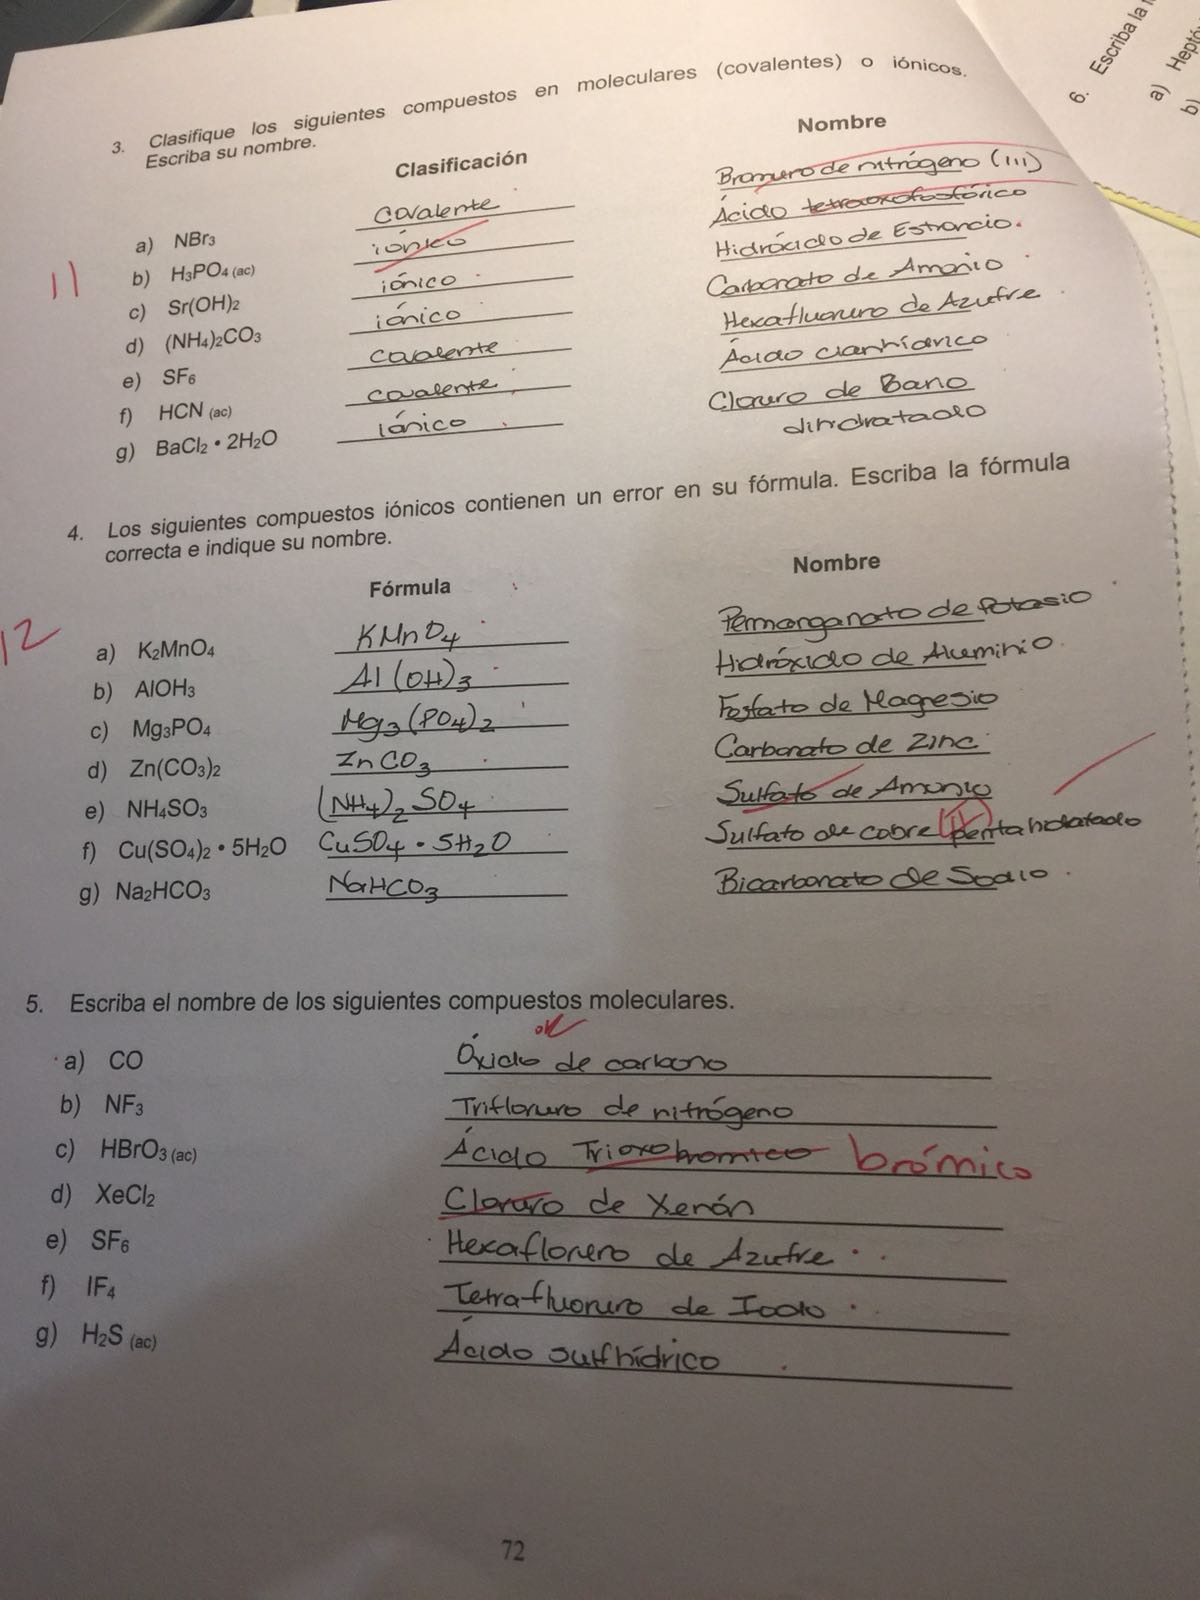 6. Escriba la
a) Heptó
b)
3. Clasifique los siguientes compuestos en moleculares (covalentes) o iónicos.
Escriba su nombre.
Clasificación Nombre
a) NBr3 covalente Bromuro de nitrógeno (III)
b) H3PO4 (ac) iónico Ácido tetraoxofosfórico
11
c) Sr(OH)2 iónico Hidróxido de Estroncio.
d) (NH4)2CO3 iónico Carbonato de Amonio
e) SF6 covalente Hexafluoruro de Azufre
f) HCN (ac) covalente Ácido cianhídrico
g) BaCl2 • 2H2O iónico Cloruro de Bario
dihidratado
4. Los siguientes compuestos iónicos contienen un error en su fórmula. Escriba la fórmula
correcta e indique su nombre.
Fórmula Nombre
12
a) K2MnO4 KMnO4 Permanganato de Potasio
b) AlOH3 Al(OH)3 Hidróxido de Aluminio
c) Mg3PO4 Mg3(PO4)2 Fosfato de Magnesio
d) Zn(CO3)2 ZnCO3 Carbonato de Zinc
e) NH4SO3 (NH4)2SO4 Sulfato de Amonio
f) Cu(SO4)2 • 5H2O CuSO4 • 5H2O Sulfato de cobre (II) pentahidratado
g) Na2HCO3 NaHCO3 Bicarbonato de Sodio
5. Escriba el nombre de los siguientes compuestos moleculares.
ok
a) CO Óxido de carbono
b) NF3 Trifloruro de nitrógeno
c) HBrO3 (ac) Ácido Trioxobromico brómico
d) XeCl2 Cloruro de Xenón
e) SF6 Hexafloruro de Azufre
f) IF4 Tetrafluoruro de Iodo
g) H2S (ac) Ácido sulfhídrico
72